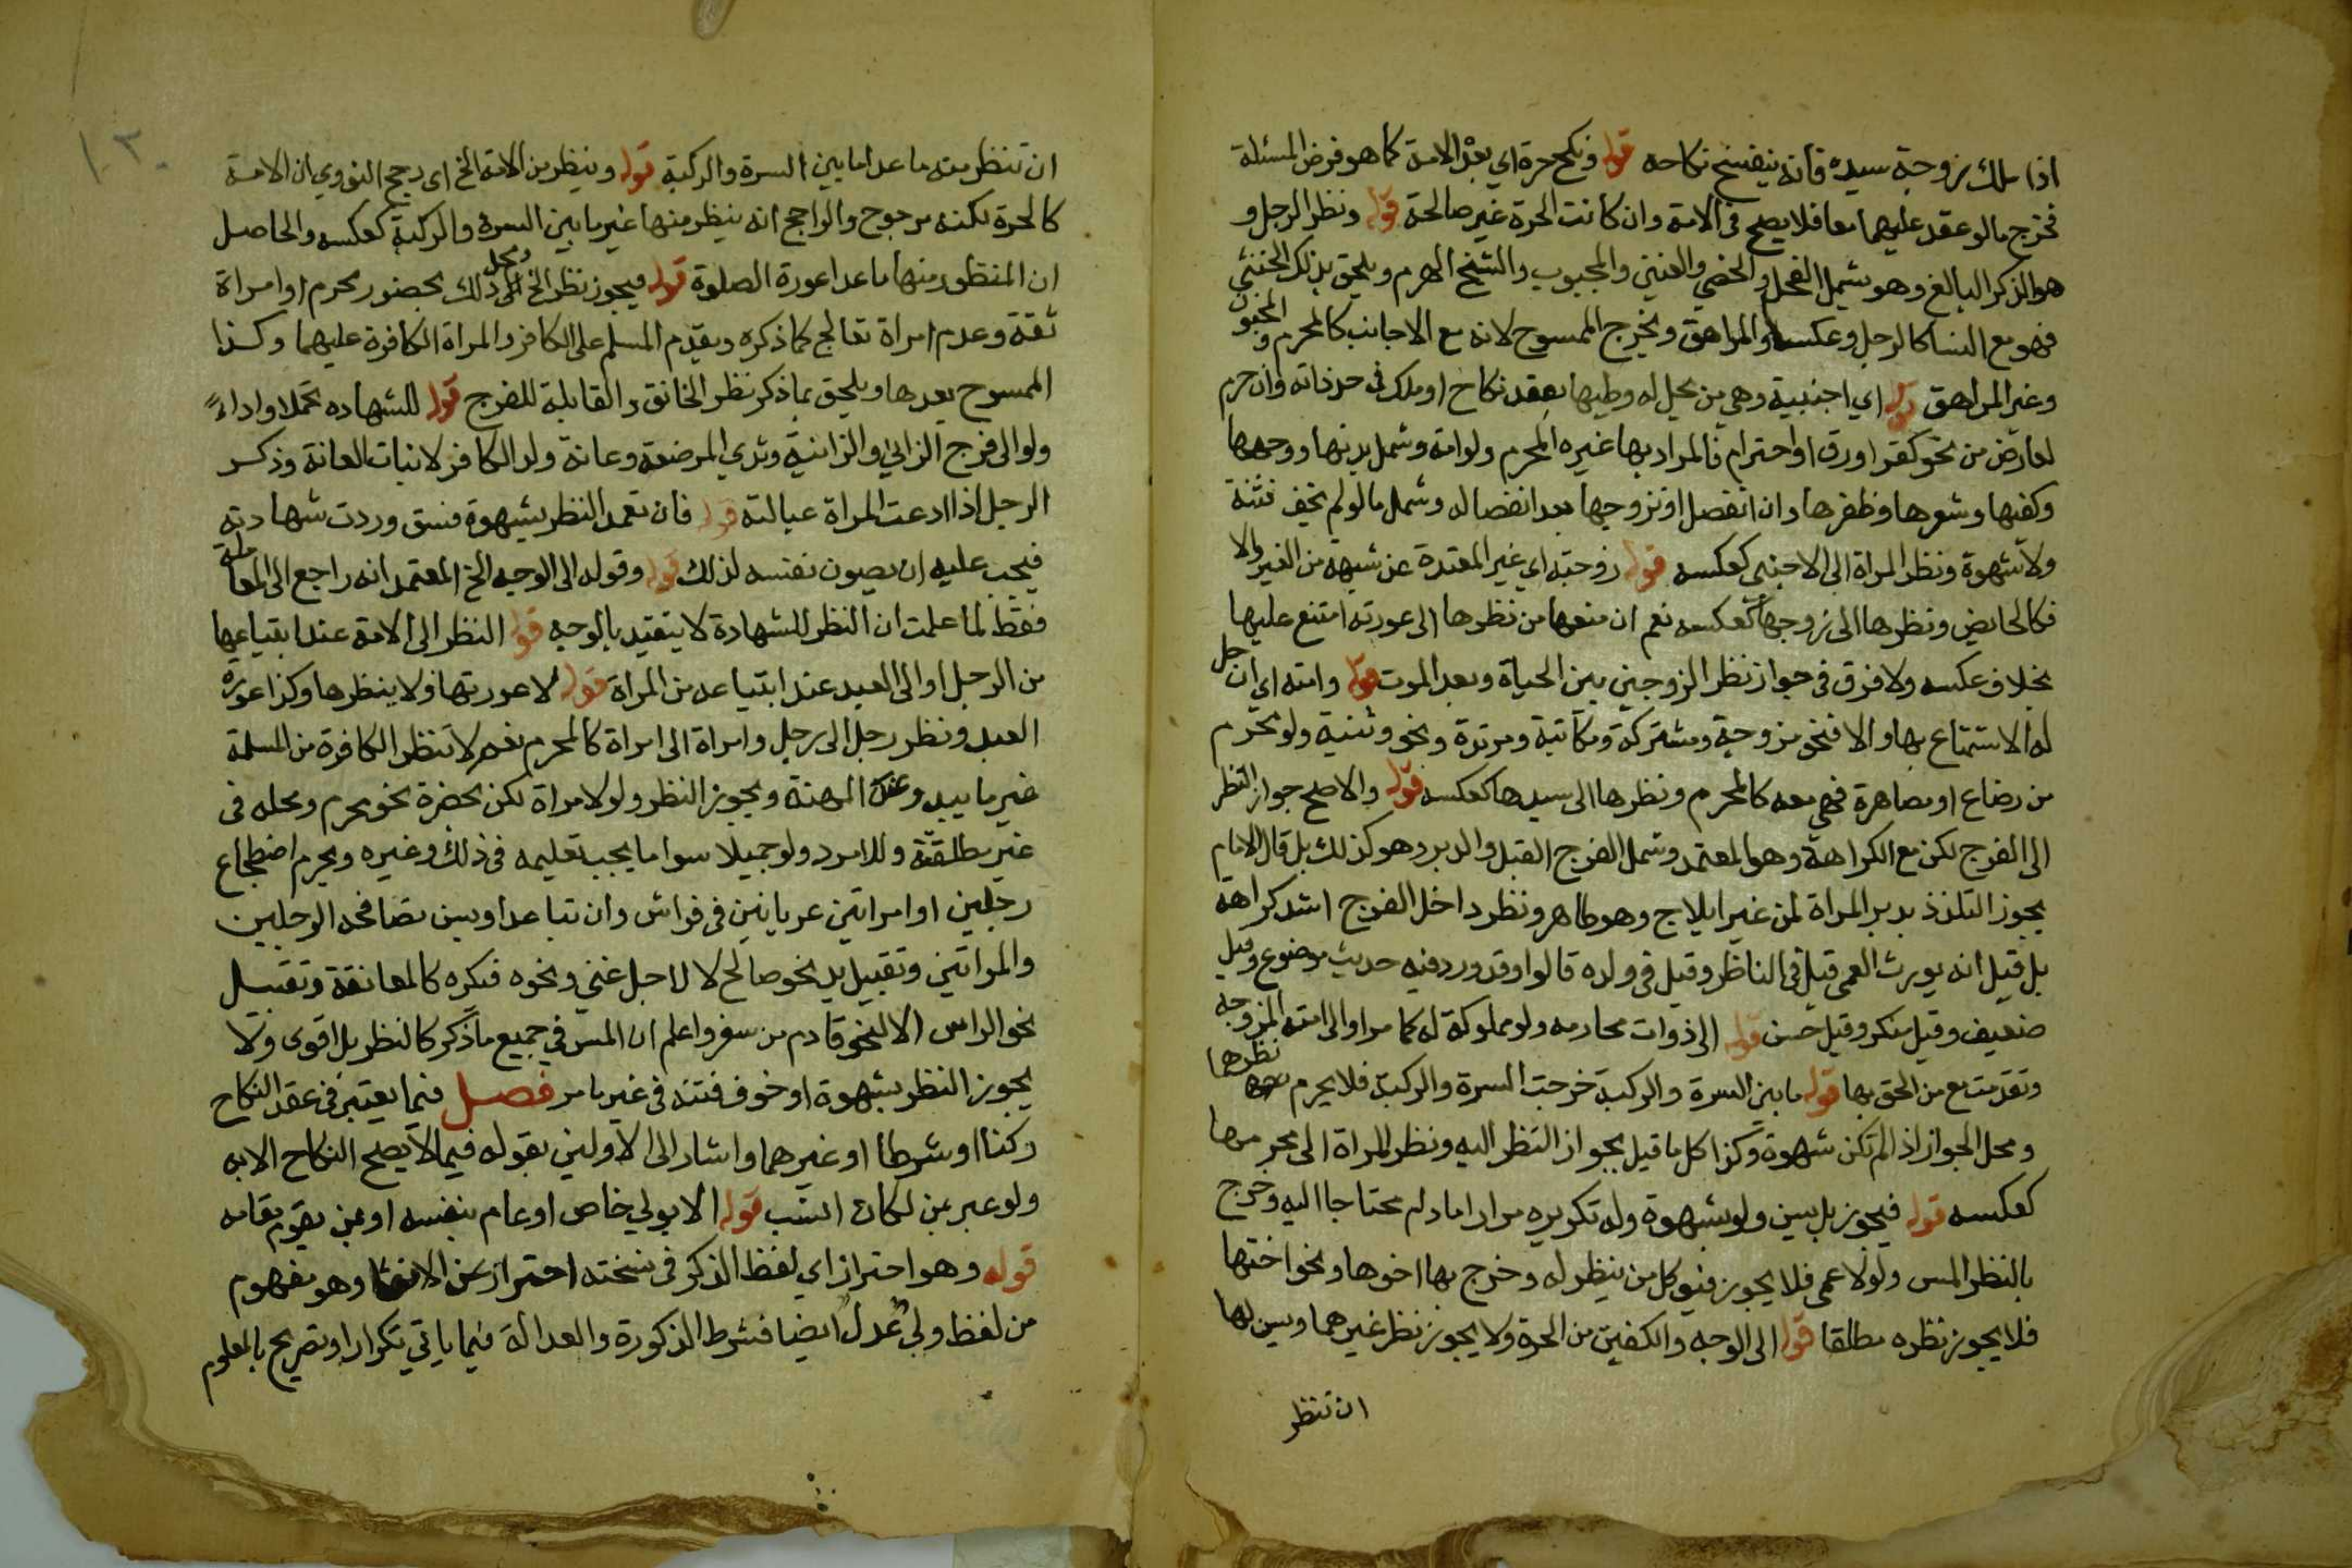 اذا ملك زوجة سيده فانه ينفسخ نكاحه قوله ونكح حرة اي بعد الامة كما هو فرض المسئلة
فخرج مالو عقد عليهما معا فلا يصح في الامة وان كانت الحرة غير صالحة قوله ونظر الرجل و
هو الذكر البالغ وهو يشمل الفحل والخصي والعنين والمجبوب والشيخ الهرم ويلحق بذلك الخنثى
فهو مع النسا كالرجل وعكسه والمراهق ويخرج الممسوح لانه مع الاجانب كالمحرم والمجنون
وغير المراهق قوله اي اجنبية وهي من يحل له وطيها بعقد نكاح او ملك في حد ذاته وان حرم
لعارض من نحو كفر اورق او احترام فالمراد بها غيره المحرم ولو امة وشمل بدنها ووجهها
وكفيها وشعرها وظفرها وان انفصل او تزوجها بعد انفصاله وشمل مالو لم يخف فتنة
ولا شهوة ونظر المراة الى الاجنبي كعكسه قوله زوجته اي غير المعتدة عن شبهة من الغير والا
فكالحايض ونظرها الى زوجها كعكسه نعم ان منعها من نظرها الى عورته امتنع عليها
بخلاف عكسه ولا فرق في جواز نظر الزوجين بين الحياة وبعد الموت قوله وامته اي ان حل
له الاستمتاع بها والا فنحو مزوجة ومشتركة ومكاتبة ومرتدة ونحو وثنية ولو بمحرم
من رضاع او مصاهرة فهي معه كالمحرم ونظرها الى سيدها كعكسه قوله والاصح جواز النظر
الى الفرج لكن مع الكراهة وهو المعتمد وشمل الفرج القبل والدبر وهو كذلك بل قال الامام
يجوز التلذذ بدبر المراة من غير ايلاج وهو ظاهر ونظر داخل الفرج اشد كراهة
بل قيل انه يورث العمى قيل في الناظر وقيل في ولده قالوا وقد ورد فيه حديث موضوع وقيل
ضعيف وقيل منكر وقيل حسن قوله الى ذوات محارمه ولو مملوكة له كما مر او الى امته المزوجة
وتقدمت مع من الحق بها قوله ما بين السرة والركبة خرجت السرة والركبة فلا يحرم نظرها
ومحل الجواز اذا لم تكن شهوة وكذا كل ما قيل بجواز النظر اليه ونظر المراة الى محرمها
كعكسه قوله فيجوز بل يسن ولو بشهوة وله تكريره مرارا ما دام محتاجا اليه وخرج
بالنظر المس ولو لا عمى فلا يجوز فيوكل من ينظر له وخرج بها اخوها ونحو اختها
فلا يجوز نظره مطلقا قوله الى الوجه والكفين من الحرة ولا يجوز نظر غيرهما ويسن لها
ان تنظر
١٣٠
ان تنظر منه ما عدا ما بين السرة والركبة قوله وينظر من الامة الخ اي رجح النووي ان الامة
كالحرة لكنه مرجوح والراجح انه ينظر منها غير ما بين السرة والركبة كعكسه والحاصل
ان المنظور منها ما عدا عورة الصلوة قوله فيجوز نظر الخ ومحل ذلك بحضور محرم او امراة
ثقة وعدم امراة تعالج كما ذكره ويقدم المسلم على الكافر والمراة الكافرة عليهما وكذا
الممسوح بعدها ويلحق بما ذكر نظر الخانق والقابلة للفرج قوله للشهاده تحملا واداءً
ولو الى فرج الزاني والزانية وثدي المرضعة وعانة ولد الكافر لانبات العانة وذكر
الرجل اذا ادعت المراة عبالته قوله فان تعمد النظر بشهوة فسق وردت شهادته
فيجب عليه ان يصون نفسه لذلك قوله وقوله الى الوجه الخ المعتمد انه راجع الى المعاملة
فقط لما علمت ان النظر للشهادة لا يتقيد بالوجه قوله النظر الى الامة عند ابتياعها
من الرجل او الى العبد عند ابتياعه من المراة قوله لا عورتها فلا ينظرها وكذا عورة
العبد ونظر رجل الى رجل وامراة الى امراة كالمحرم نعم لا تنظر الكافرة من المسلمة
غير ما يبدو عند المهنة ويجوز النظر ولو لامراة لكن بحضرة نحو محرم ومحله في
غير مطلقته وللامرد ولو جميلا سوا ما يجب تعليمه في ذلك وغيره ويحرم اضطجاع
رجلين او امراتين عريانين في فراش وان تباعدا ويسن تصافحه الرجلين
والمراتين وتقبيل يد نحو صالح لا لاجل غني ونحوه فيكره كالمعانقة وتقبيل
نحو الراس الا لنحو قادم من سفر واعلم ان المس في جميع ما ذكر كالنظر بل اقوى ولا
يجوز النظر بشهوة او خوف فتنة في غير ما مر فصل فيما يعتبر في عقد النكاح
ركنا او شرطا او غيرهما واشار الى الاولين بقوله فيما لا يصح النكاح الا به
ولو عبر بمن لكان انسب قوله الا بولي خاص او عام بنفسه او بمن يقوم مقامه
قوله وهو احتراز اي لفظ الذكر في نسخته احتراز عن الانثى وهو مفهوم
من لفظ ولي عدل ايضا فشرط الذكورة والعدالة فيما ياتي تكرارا وتصريح بالمعلوم